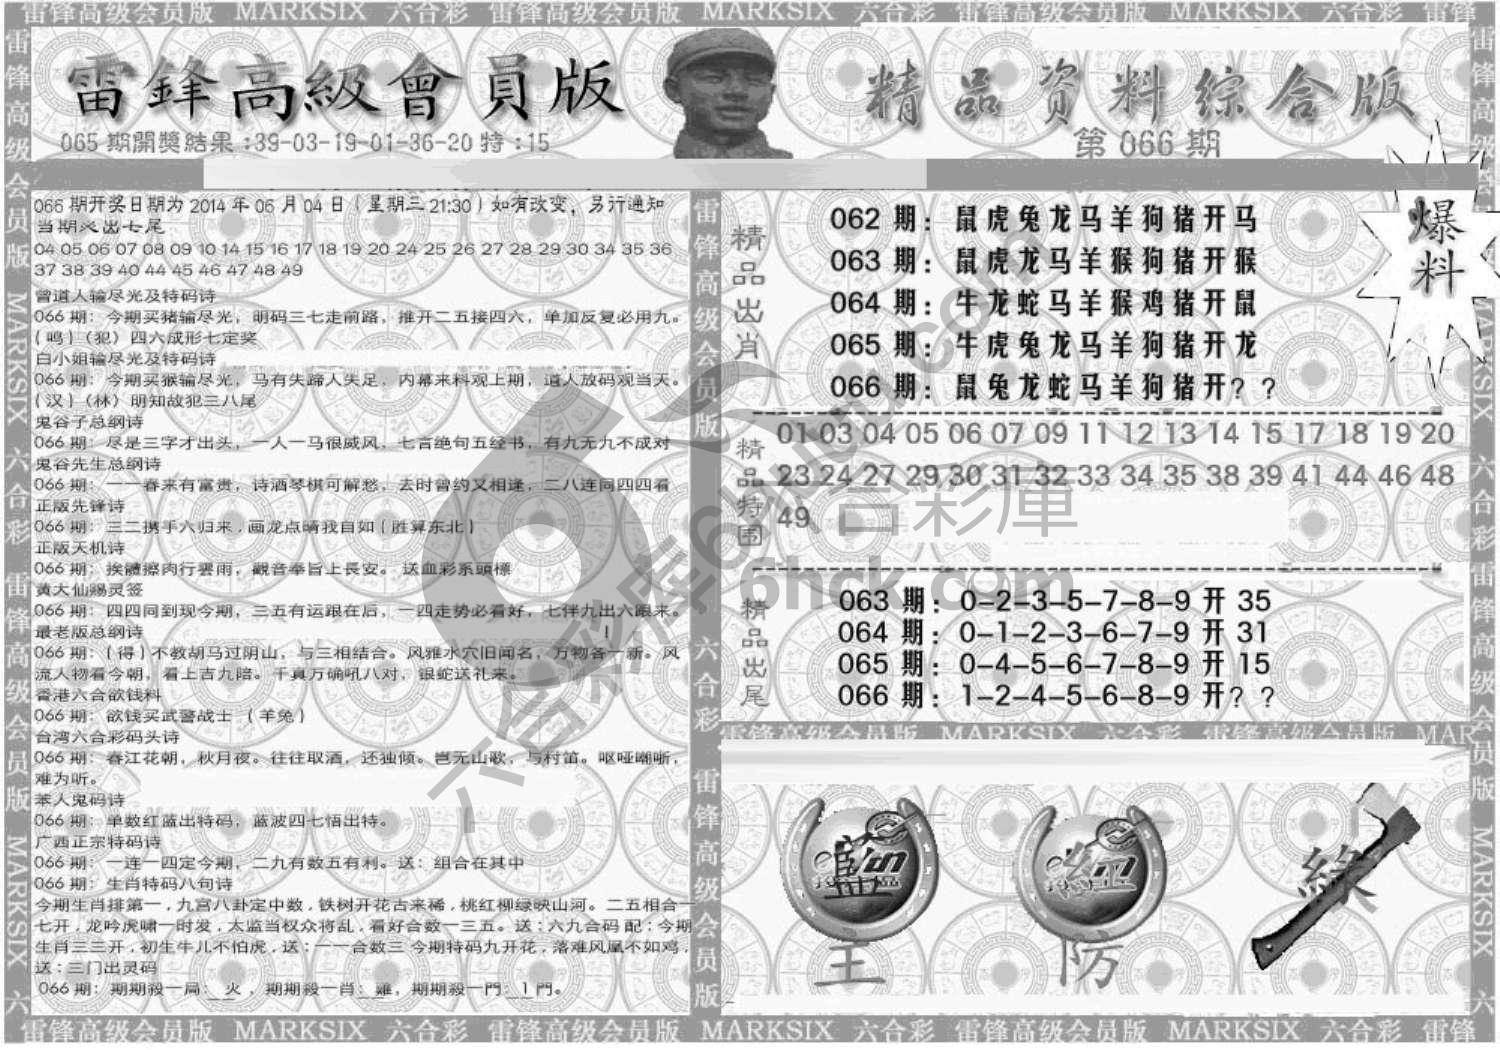 雷锋高级会员版 MARKSIX 六合彩 雷锋高级会员版 MARKSIX 六合彩 雷锋高级会员版 MARKSIX 六合彩 雷锋
雷鋒高級會員版
065 期開獎結果:39-03-19-01-36-20 特:15
精品资料综合版
第 066 期
爆料
066 期开奖日期为 2014 年 06 月 04 日(星期三 21:30)如有改变,另行通知
当期必出七尾
04 05 06 07 08 09 10 14 15 16 17 18 19 20 24 25 26 27 28 29 30 34 35 36
37 38 39 40 44 45 46 47 48 49
曾道人输尽光及特码诗
066 期: 今期买猪输尽光, 明码三七走前路, 推开二五接四六, 单加反复必用九。
(鸣)(犯)四六成形七定奖
白小姐输尽光及特码诗
066 期: 今期买猴输尽光, 马有失蹄人失足, 内幕来料观上期, 道人放码观当天。
(汉)(林)明知故犯三八尾
鬼谷子总纲诗
066 期: 尽是三字才出头, 一人一马很威风, 七言绝句五经书, 有九无九不成对
鬼谷先生总纲诗
066 期: 一一春来有富贵, 诗酒琴棋可解愁, 去时曾约又相逢, 三八连同四四看
正版先锋诗
066 期: 三二携手六归来,画龙点晴我自如(胜算东北)
正版天机诗
066 期: 挨體擦肉行雲雨, 觀音奉旨上長安。 送血彩系頭標
黄大仙赐灵签
066 期: 四四同到现今期, 三五有运跟在后, 一四走势必看好, 七伴九出六跟来。
最老版总纲诗
066 期:(得)不教胡马过阴山, 与三相结合。风雅水穴旧闻名, 万物各一新。风
流人物看今朝, 看上吉九陪。千真万确吼八对, 银蛇送礼来。
香港六合欲钱料
066 期: 欲钱买武警战士 (羊兔)
台湾六合彩码头诗
066 期: 春江花朝, 秋月夜。往往取酒, 还独倾。岂无山歌, 与村笛。呕哑嘲哳,
难为听。
苯人鬼码诗
066 期: 单数红蓝出特码, 蓝波四七悟出特。
广西正宗特码诗
066 期: 一连一四定今期, 二九有数五有利。送: 组合在其中
066 期: 生肖特码八句诗
今期生肖排第一,九宫八卦定中数,铁树开花古来稀,桃红柳绿映山河。二五相合一
七开,龙吟虎啸一时发,太监当权众将乱,看好合数一三五。送:六九合码 配:今期
生肖三三开,初生牛儿不怕虎,送:一一合数三 今期特码九开花,落难凤凰不如鸡,
送:三门出灵码
066 期: 期期殺一局: 火 , 期期殺一肖: 雞, 期期殺一門: 1 門。
精品出肖
062 期: 鼠虎兔龙马羊狗猪开马
063 期: 鼠虎龙马羊猴狗猪开猴
064 期: 牛龙蛇马羊猴鸡猪开鼠
065 期: 牛虎兔龙马羊狗猪开龙
066 期: 鼠兔龙蛇马羊狗猪开? ?
精品特围
01 03 04 05 06 07 09 11 12 13 14 15 17 18 19 20
23 24 27 29 30 31 32 33 34 35 38 39 41 44 46 48
49
精品出尾
063 期: 0-2-3-5-7-8-9 开 35
064 期: 0-1-2-3-6-7-9 开 31
065 期: 0-4-5-6-7-8-9 开 15
066 期: 1-2-4-5-6-8-9 开? ?
雷锋高级会员版 MARKSIX 六合彩 雷锋高级会员版 MAR
藍
王
防
綠
六合彩库
六合彩庫
6hck.com
雷锋高级会员版 MARKSIX 六合彩 雷锋高级会员版 MARKSIX 六合彩 雷锋高级会员版 MARKSIX 六合彩 雷锋